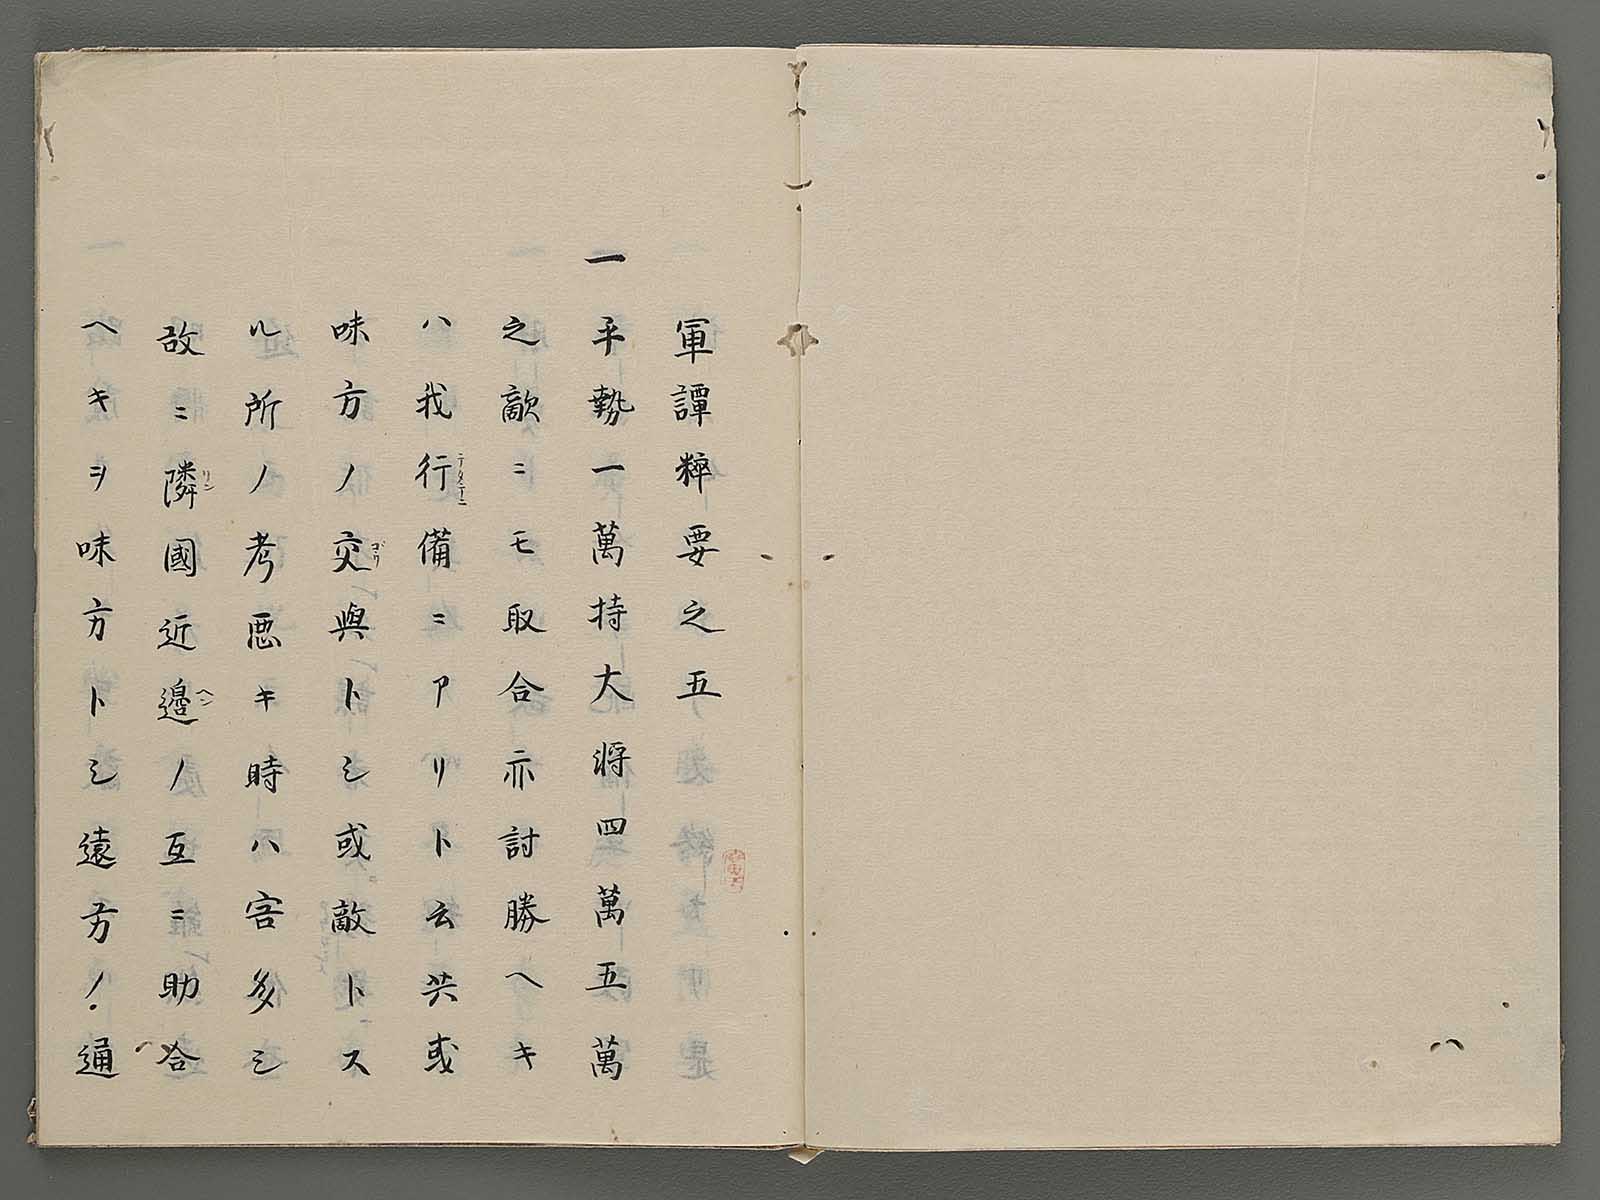 軍譚粹要之五
一平勢一萬持大将四萬五萬
之敵ニモ取合亦討勝ヘキ
ハ我行備ニアリト云共或
味方ノ交與トシ或敵トス
ル所ノ考悪キ時ハ害多シ
故ニ隣國近邊ノ互ニ助合
ヘキヲ味方トシ遠方ノ通